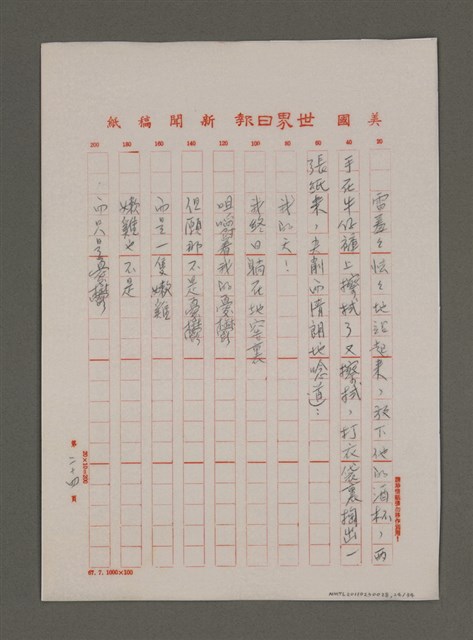 美國世界日報新聞稿紙
20
40
60
80
100
120
140
160
180
200
雷羞々怯々地站起來，放下他的酒杯，両
手在牛仔褲上擦拭了又擦拭，打衣袋裏掏出一
張紙來，尖削而清朗地唸道：
我的天！
我終日躺在地窖裏
咀嚼著我的憂鬱
但願那不是憂鬱
而是一隻嫩雞
嫩雞也不是
而只是憂鬱
20×10=200
第二十四頁
67.7.1000×100